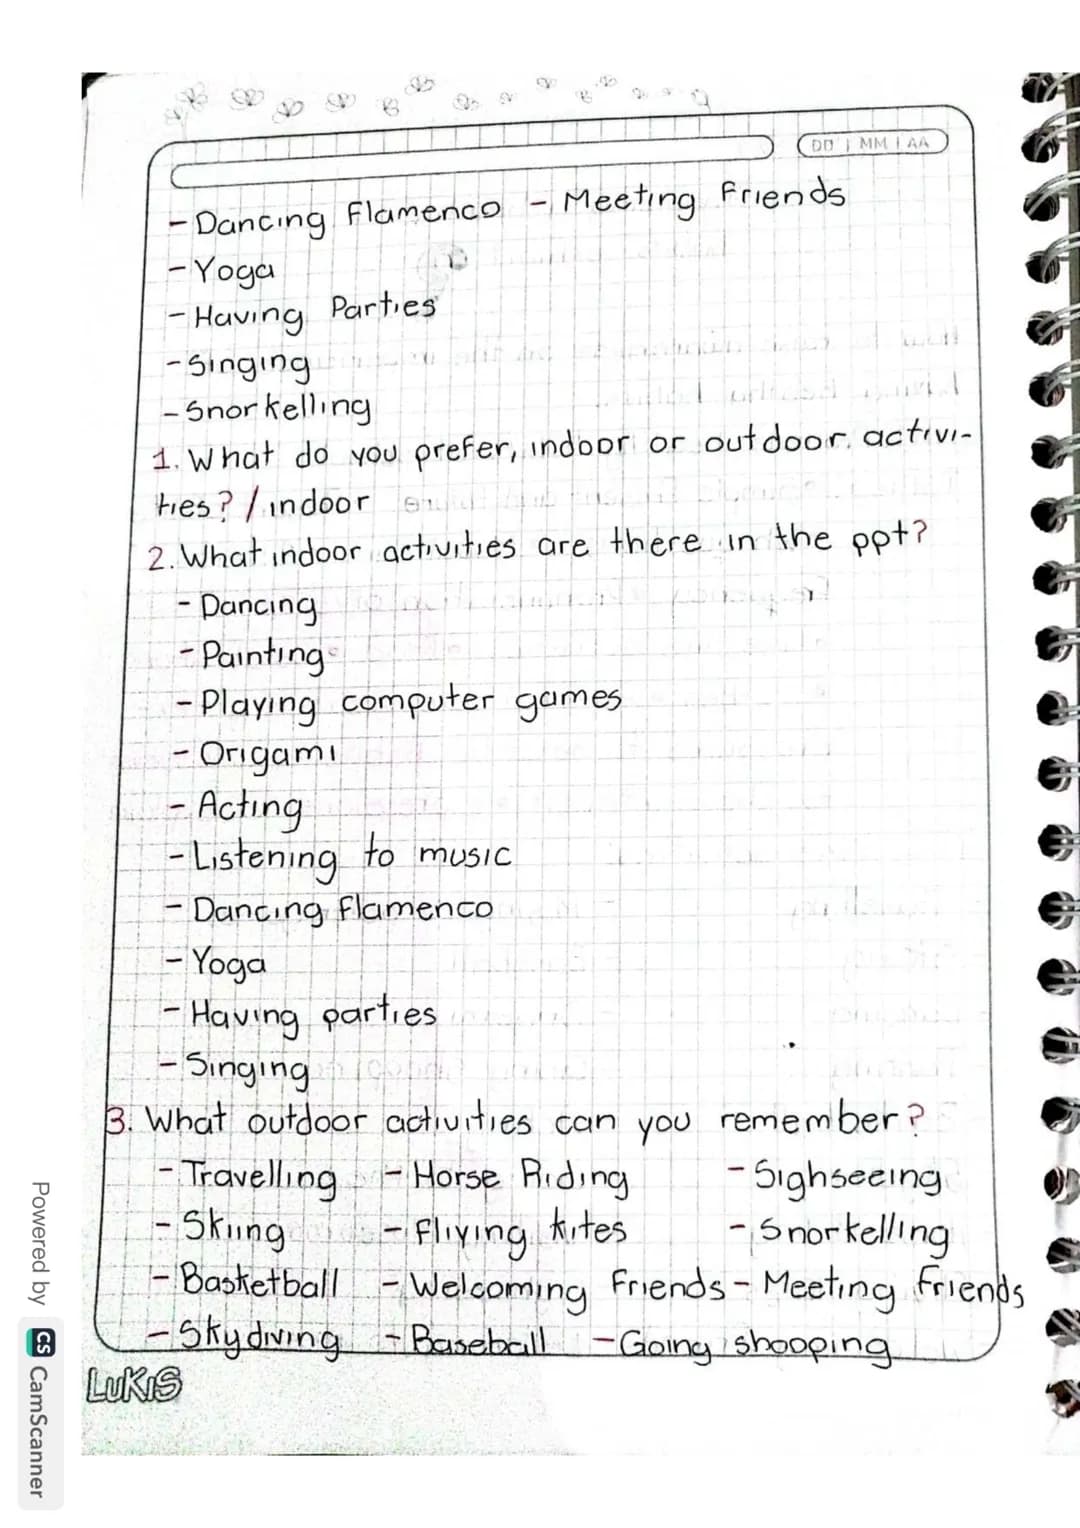 DD | MM | AA
- Dancing Flamenco - Meeting Friends
- Yoga
- Having Parties
- Singing
- Snorkelling
1. What do you prefer, indoor or outdoor activi-
ties? / indoor
2. What indoor activities are there in the ppt?
- Dancing
- Painting
- Playing computer games
- Origami
- Acting
- Listening to music
- Dancing flamenco
- Yoga
- Having parties
- Singing
3. What outdoor activities can you remember?
- Travelling - Horse Riding - Sighseeing
- Skiing - Fliying kites - Snorkelling
- Basketball - Welcoming Friends - Meeting friends
- Skydiving - Baseball - Going shopping
LUKIS
Powered by CS CamScanner